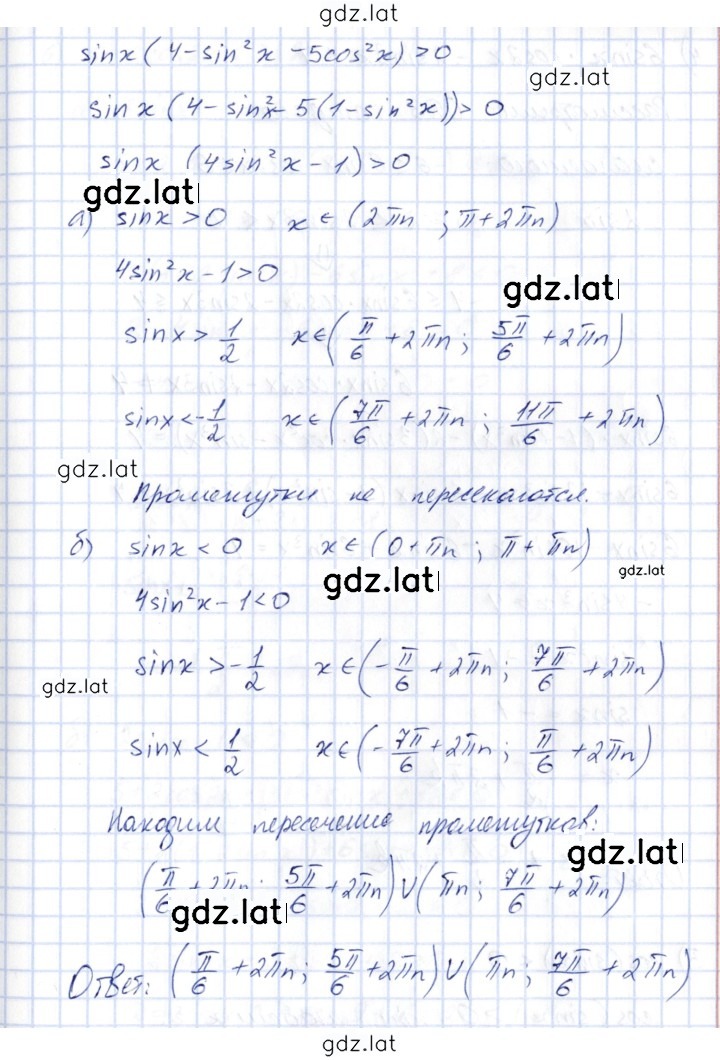 gdz.lat
sinx(4-sin²x-5cos²x)>0
gdz.lat
sinx(4-sin²x-5(1-sin²x))>0
sinx (4sin²x-1)>0
gdz.lat
а) sinx>0 x∈(2πn ; π+2πn)
4sin²x-1>0
gdz.lat
sinx>1/2 x∈(π/6+2πn; 5π/6+2πn)
sinx<-1/2 x∈(7π/6+2πn; 11π/6+2πn)
gdz.lat
Промежутки не пересекаются.
б) sinx<0 x∈(0+πn; π+πn)
gdz.lat
gdz.lat
4sin²x-1<0
sinx>-1/2 x∈(-π/6+2πn; 7π/6+2πn)
gdz.lat
sinx<1/2 x∈(-7π/6+2πn; π/6+2πn)
Находим пересечение промежутков:
gdz.lat
(π/6+2πn; 5π/6+2πn)∪(πn; 7π/6+2πn)
gdz.lat
Ответ: (π/6+2πn; 5π/6+2πn)∪(πn; 7π/6+2πn)
gdz.lat